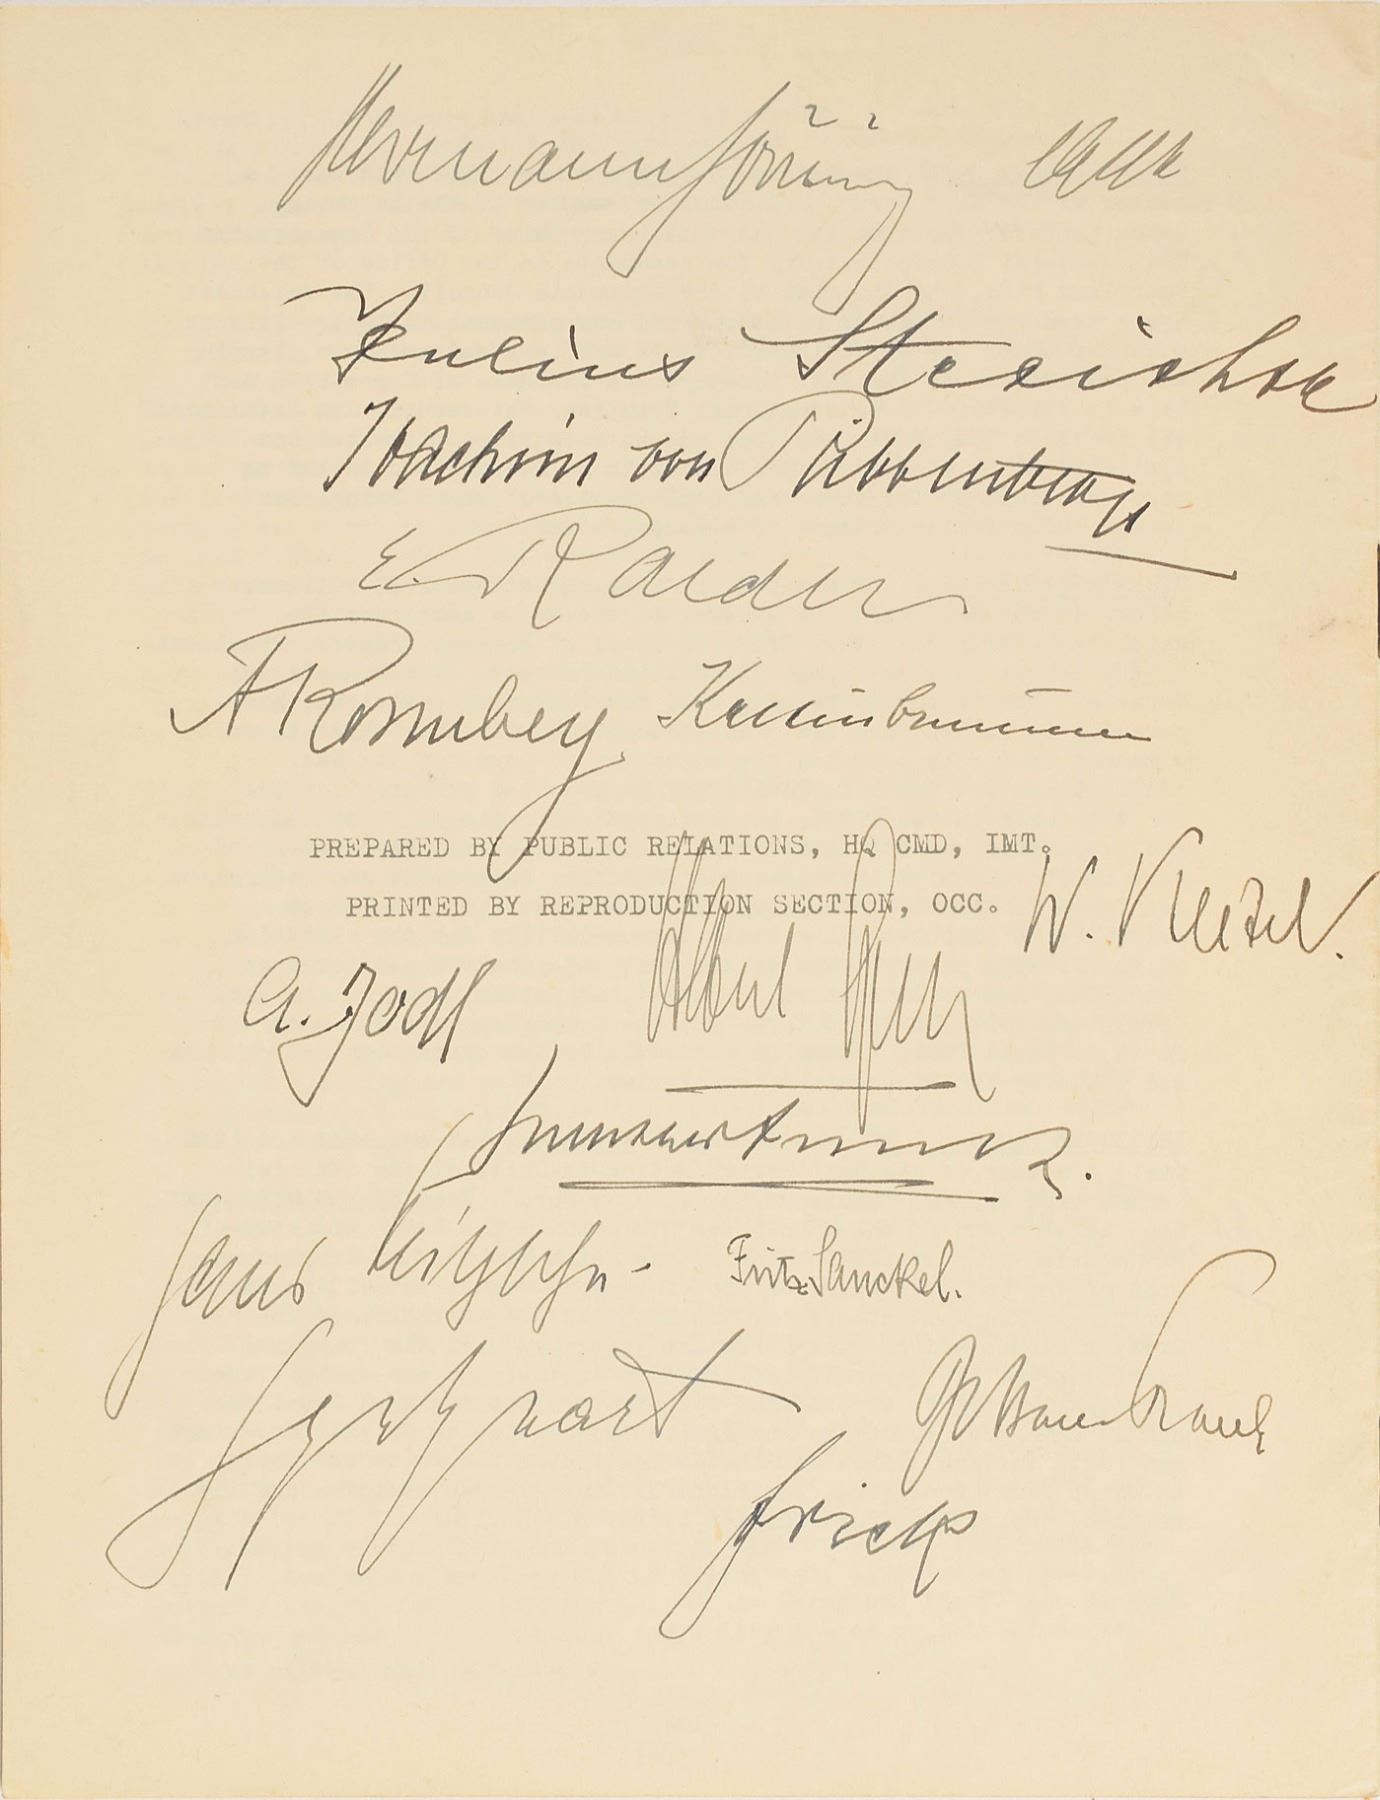 Hermann Göring
Julius Streicher
Joachim von Ribbentrop
E. Raeder
A Rosenberg Kaltenbrunner
PREPARED BY PUBLIC RELATIONS, HQ CMD, IMT.
PRINTED BY REPRODUCTION SECTION, OCC.
W. Keitel.
A. Jodl Albert Speer
Hans Fritzsche Fritz Sauckel.
Frank
Frick